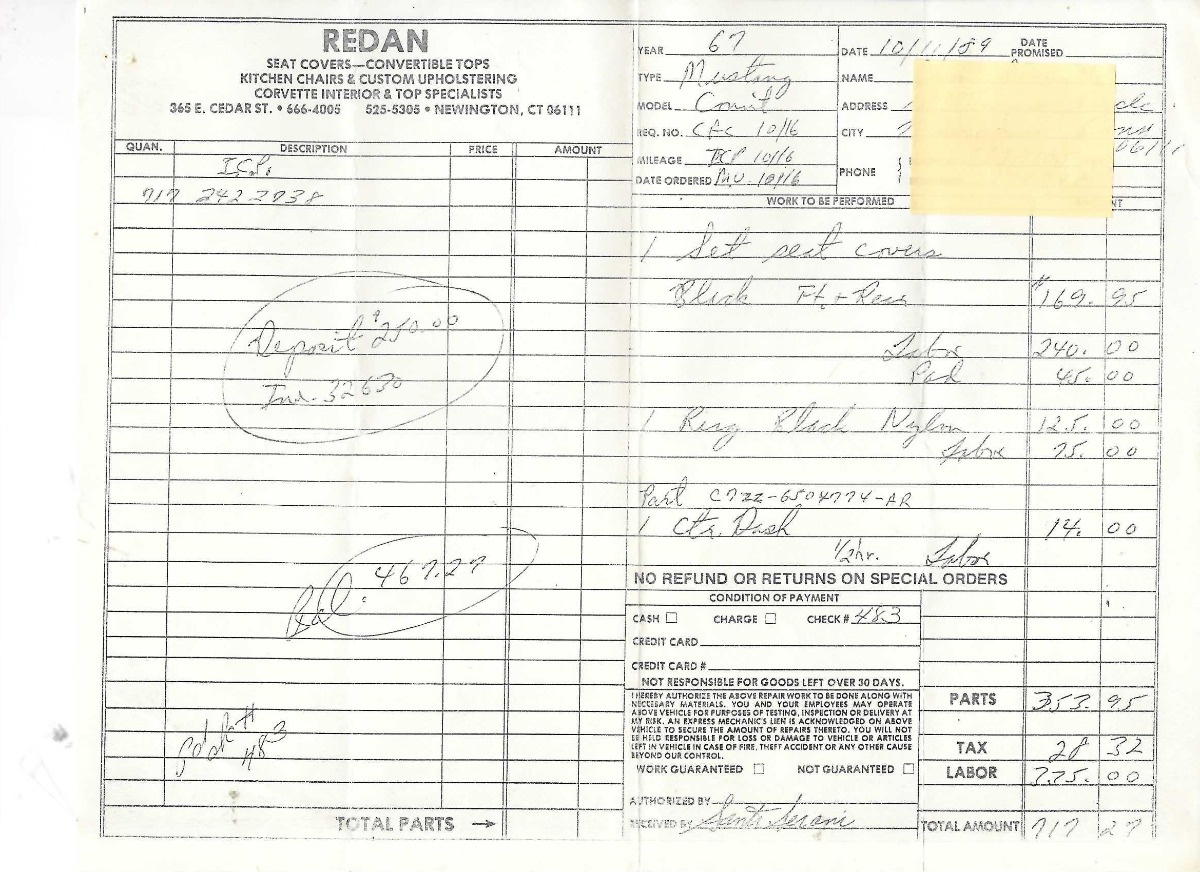 REDAN
SEAT COVERS—CONVERTIBLE TOPS
KITCHEN CHAIRS & CUSTOM UPHOLSTERING
CORVETTE INTERIOR & TOP SPECIALISTS
365 E. CEDAR ST. • 666-4005 525-5305 • NEWINGTON, CT 06111
YEAR 67
TYPE Mustang
MODEL Convt
REQ. NO. CFC 10/16
MILEAGE 10/16
DATE ORDERED M.V. 10/16
DATE 10/11/89 DATE PROMISED
NAME
ADDRESS
CITY
06111
PHONE
QUAN. DESCRIPTION PRICE AMOUNT
717 242 2738
Deposit $250.00
Inv. 32630
Bal. 467.27
Pd ck # 483
TOTAL PARTS →
WORK TO BE PERFORMED
1 Set seat covers
Black Ft. + Rear $169.95
Labor 240.00
Pad 45.00
1 Rug Black Nylon 125.00
Labor 75.00
Part C7ZZ-6504774-AR
1 Ctr. Dash 14.00
1/2hr. Labor
NO REFUND OR RETURNS ON SPECIAL ORDERS
CONDITION OF PAYMENT
CASH ☐ CHARGE ☐ CHECK # 483
CREDIT CARD
CREDIT CARD #
NOT RESPONSIBLE FOR GOODS LEFT OVER 30 DAYS.
I HEREBY AUTHORIZE THE ABOVE REPAIR WORK TO BE DONE ALONG WITH
NECESSARY MATERIALS. YOU AND YOUR EMPLOYEES MAY OPERATE
ABOVE VEHICLE FOR PURPOSES OF TESTING, INSPECTION OR DELIVERY AT
MY RISK. AN EXPRESS MECHANIC'S LIEN IS ACKNOWLEDGED ON ABOVE
VEHICLE TO SECURE THE AMOUNT OF REPAIRS THERETO. YOU WILL NOT
BE HELD RESPONSIBLE FOR LOSS OR DAMAGE TO VEHICLE OR ARTICLES
LEFT IN VEHICLE IN CASE OF FIRE, THEFT ACCIDENT OR ANY OTHER CAUSE
BEYOND OUR CONTROL.
WORK GUARANTEED ☐ NOT GUARANTEED ☐
AUTHORIZED BY
RECEIVED BY
PARTS 353.95
TAX 28 32
LABOR 335.00
TOTAL AMOUNT 717 27